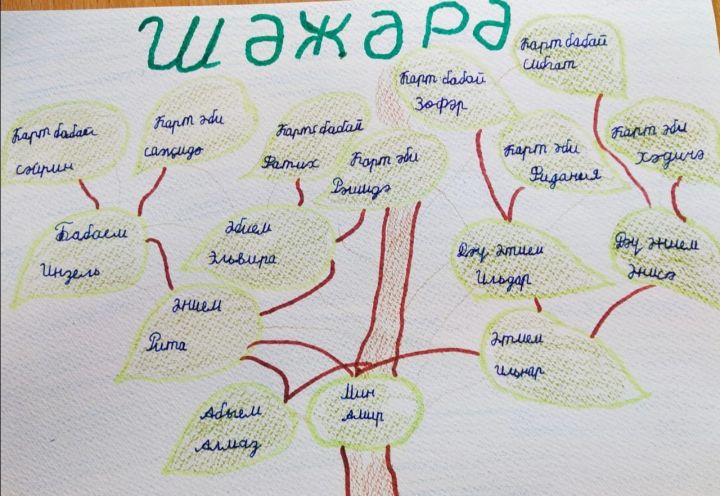 Шәжәрә
Карт бабай
Сибгат
Карт бабай
Зөфәр
Карт бабай
Сәйрин
Карт әби
Сәҗидә
Карт бабай
Фатих
Карт әби
Рәшидә
Карт әби
Ридания
Карт әби
Хәдичә
Бабаем
Инзель
Әбием
Эльвира
Дәү әтием
Ильдар
Дәү әнием
Әнисә
Әнием
Рита
Әтием
Ильнар
Абыем
Алмаз
Мин
Амир